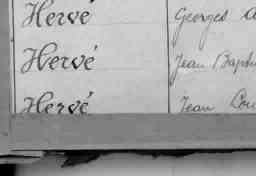 Hervé Georges
Hervé Jean
Hervé Jean